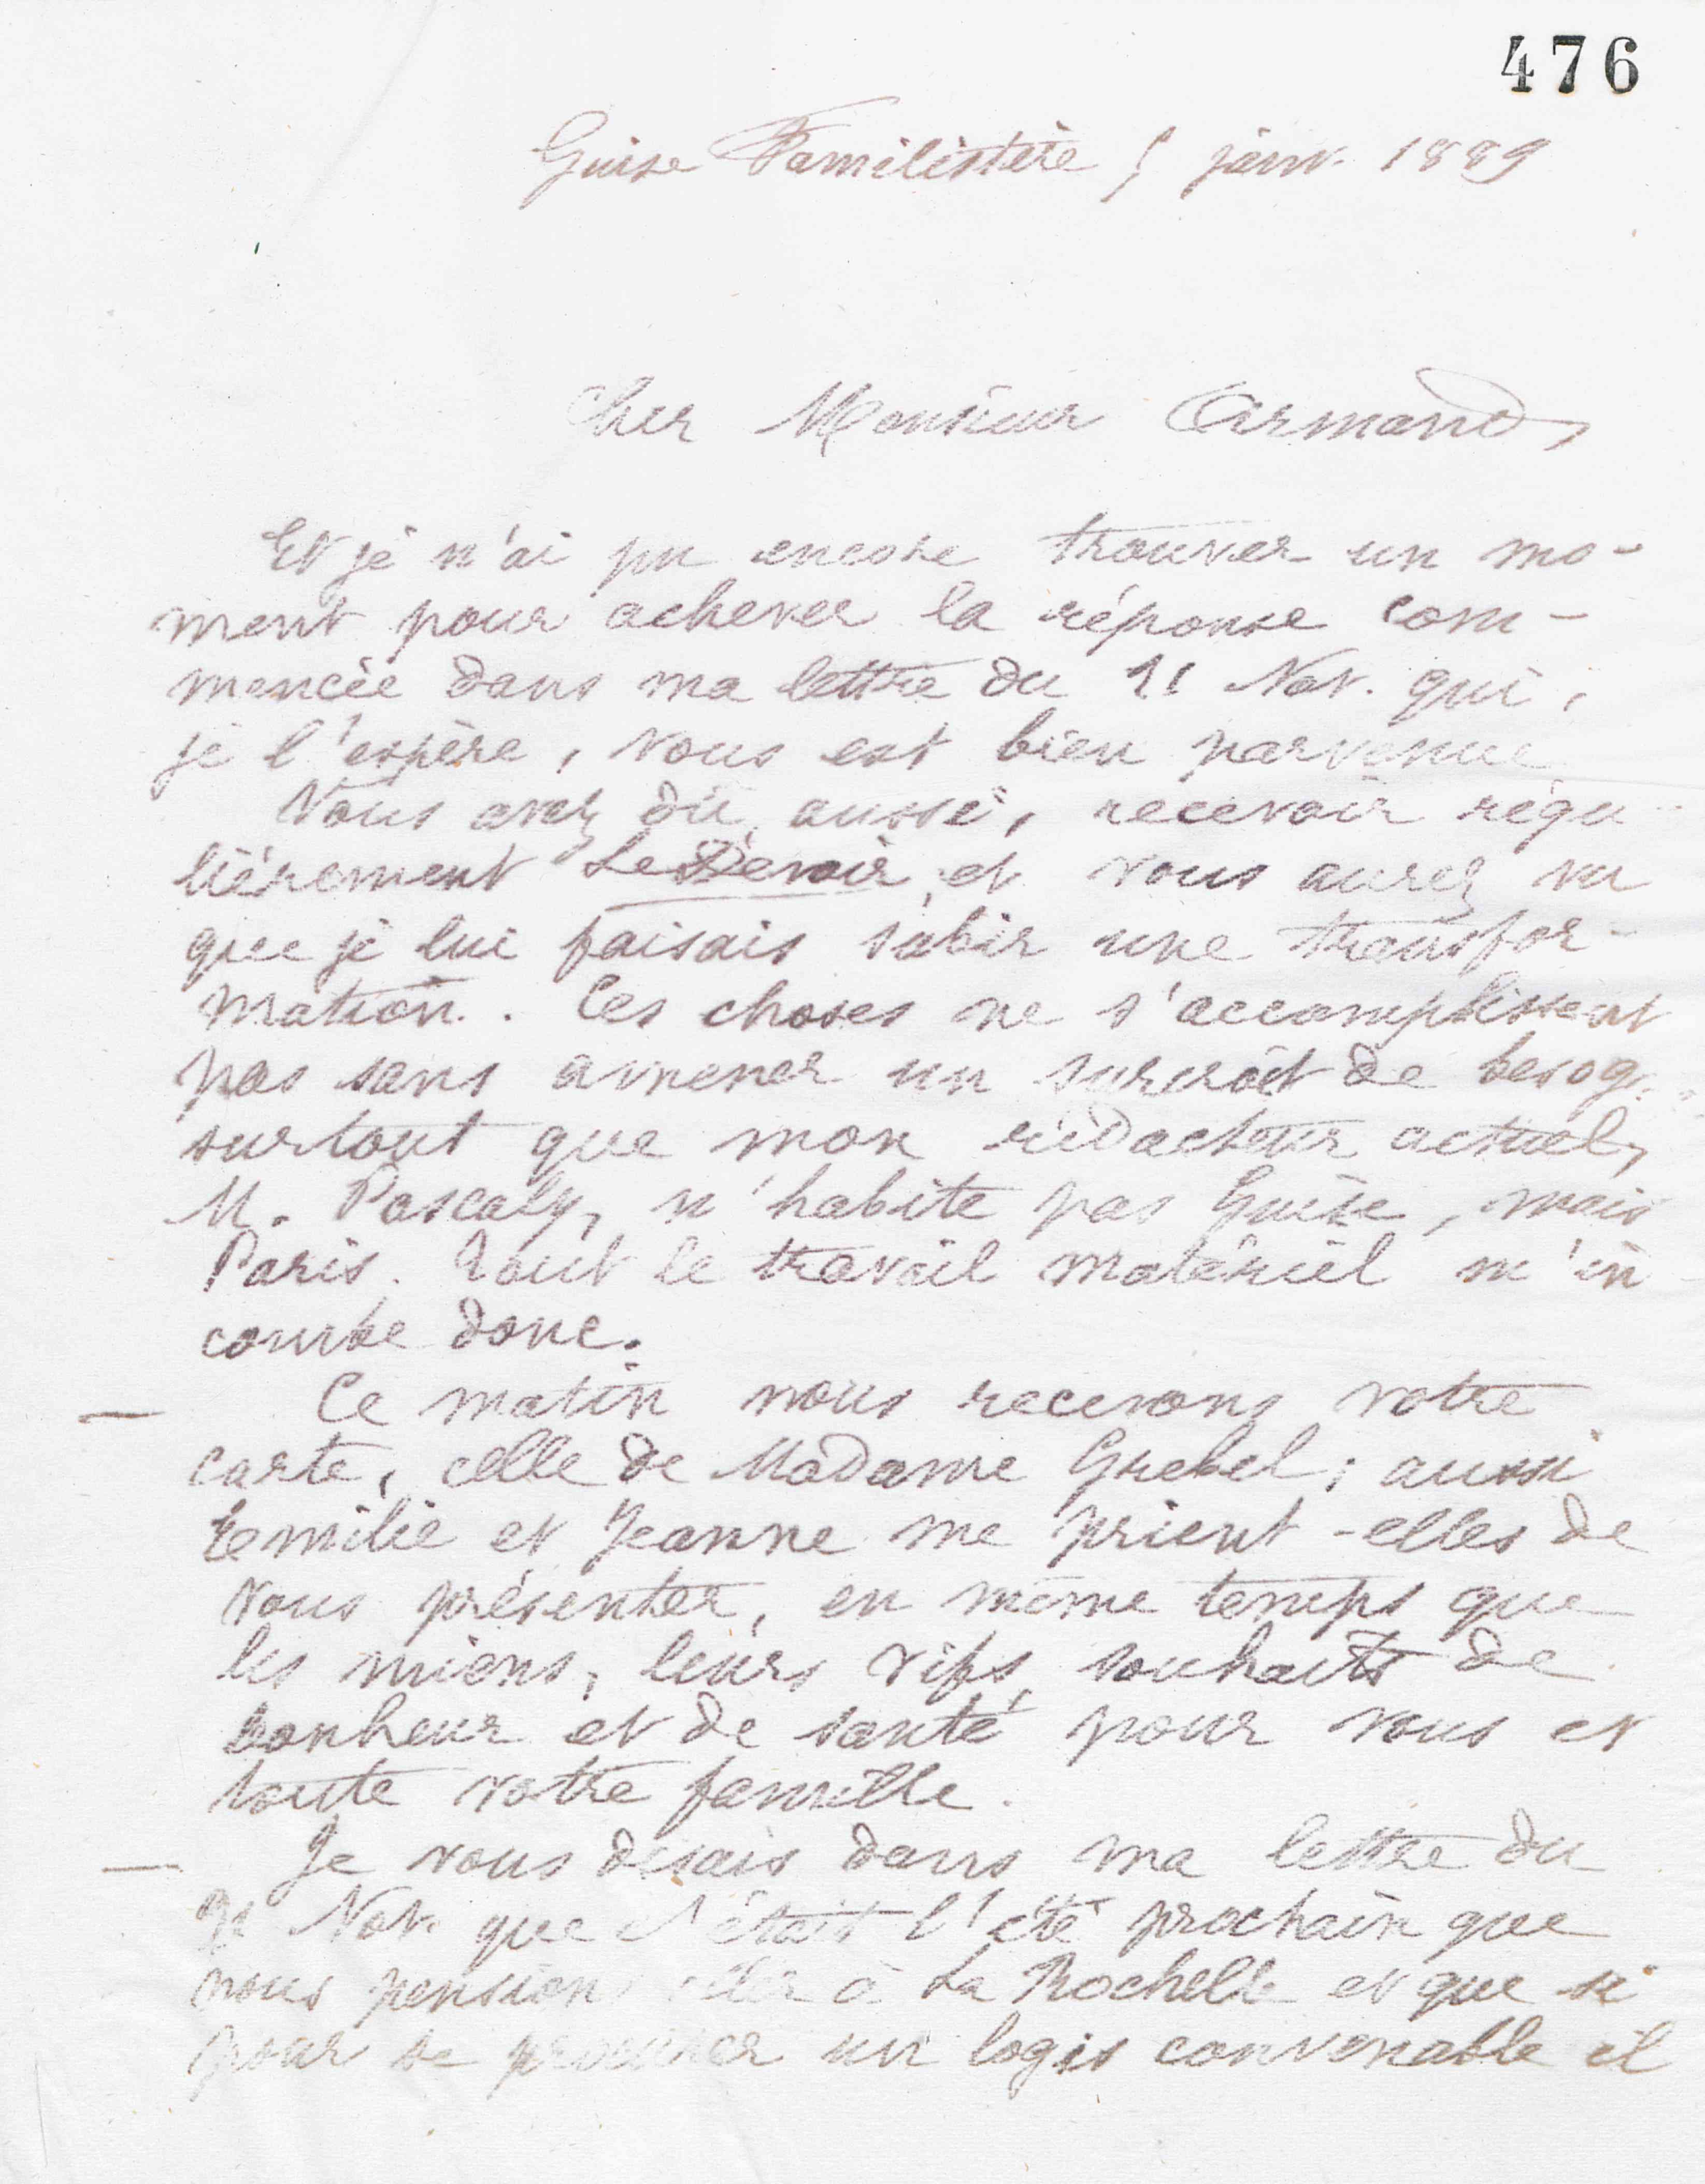 476
Guise Familistère 5 janv. 1889
Cher Monsieur Armand,
Et je n'ai pu encore trouver un mo-
ment pour achever la réponse com-
mencée dans ma lettre du 21 Nov. qui,
je l'espère, vous est bien parvenue.
Vous avez dû, aussi, recevoir régu-
lièrement Le Devoir, et vous aurez vu
que je lui faisais subir une transfor-
mation. Ces choses ne s'accomplissent
pas sans amener un surcroît de besog
surtout que mon rédacteur actuel,
M. Pascaly, n'habite pas Guise, mais
Paris. Tout le travail matériel m'in
combe donc.
— Ce matin nous recevons votre
carte, celle de Madame Grebel; aussi
Emilie et Jeanne me prient-elles de
vous présenter, en même temps que
les miens, leurs vifs souhaits de
bonheur et de santé pour vous et
toute votre famille.
— Je vous disais dans ma lettre du
21 Nov. que c'était l'été prochain que
nous pensions aller à La Rochelle et que si
pour se procurer un logis convenable il